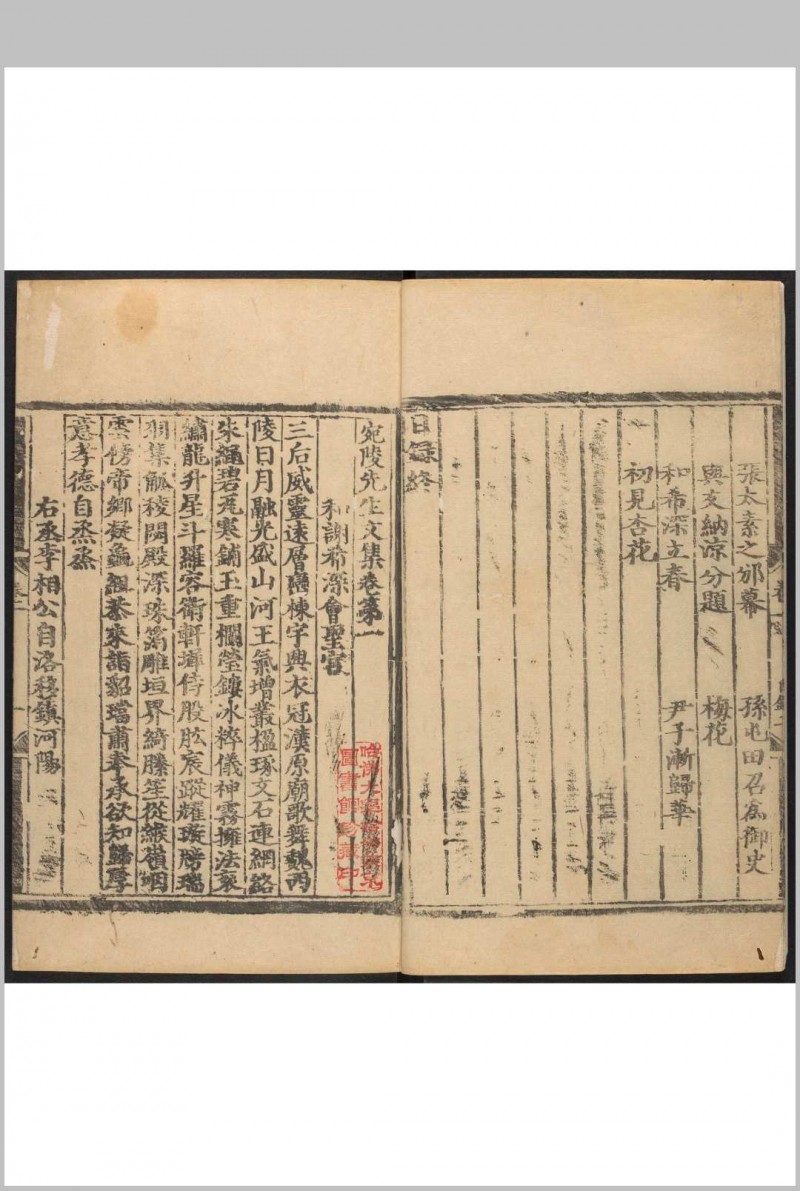 張太素之邠幕
孫屯田召為御史
與友納涼分題
梅花
和希深立春
尹子漸歸華
初見杏花
目錄終
宛陵先生文集卷第一
和謝希深會聖宮
三后威靈遠層巒棟宇興衣冠漢原廟歌舞魏西
陵日月融光盛山河王氣增叢楹琢文石連網絡
朱繩碧瓦寒鋪玉重欄瑩鏤冰粹儀神霧擁法袞
繡龍升星斗羅容衛軒墀侍股肱宸蹤耀璇牓瑞
羽集觚稜閟殿深珠箔雕垣界綺塍笙從緱嶺咽
雲傍帝鄉凝龜組恭來詣貂璫肅奉承欲知歸厚
意孝德自烝烝
右丞李相公自洛移鎮河陽
哈佛大學漢和
圖書館珍藏印